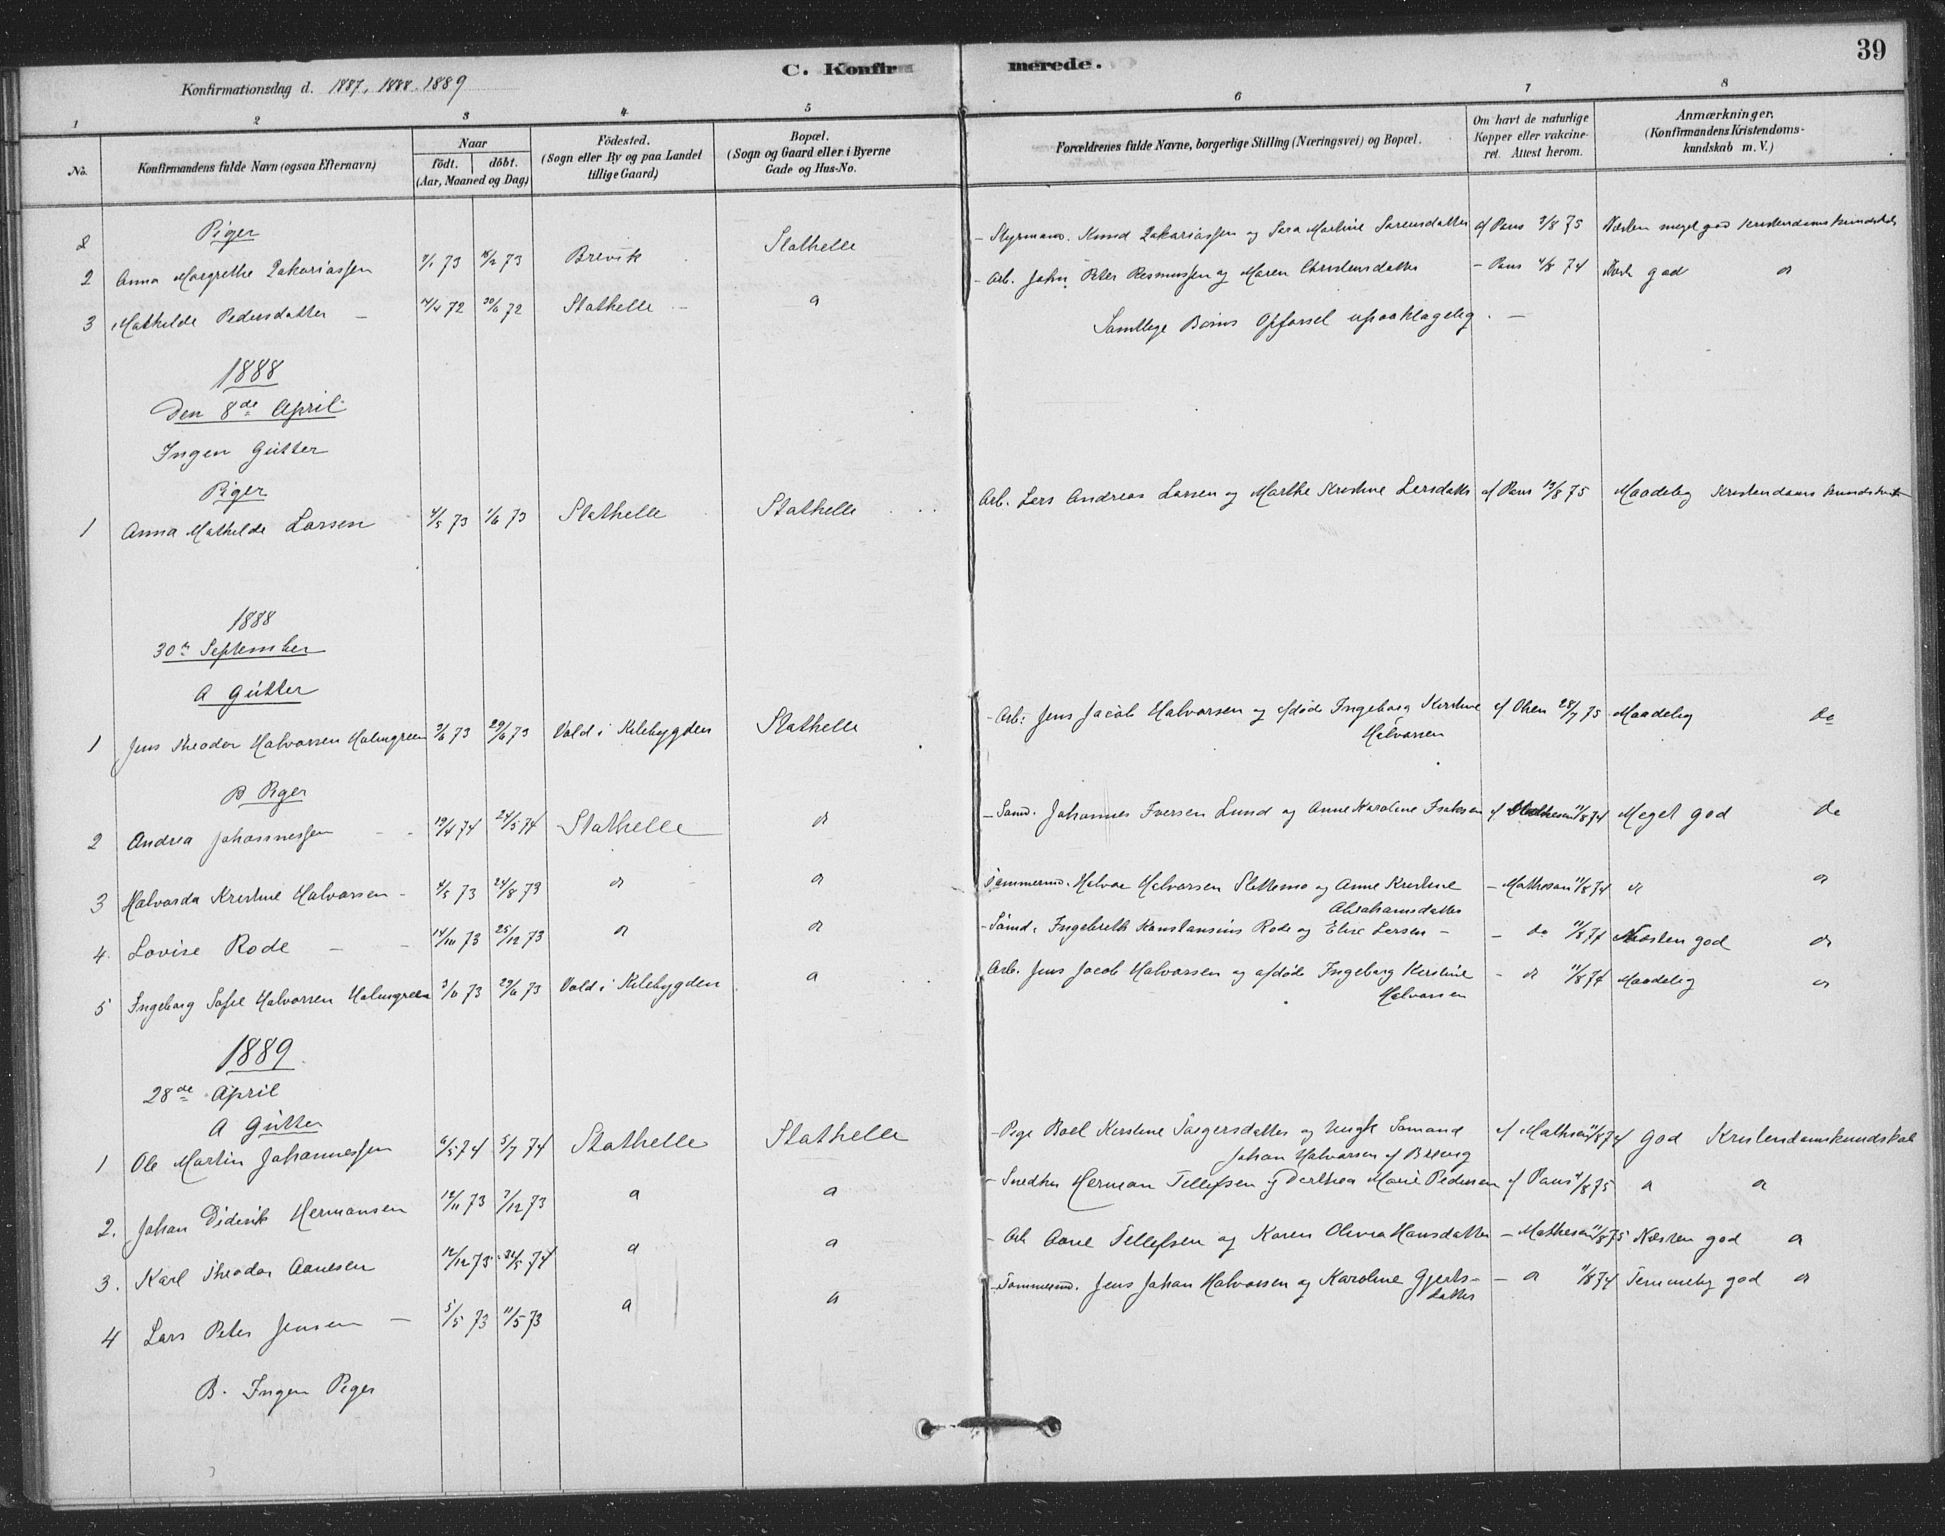 39
C. Konfirmerede.
Konfirmationsdag d. 1887, 1888. 1889
1 2 3 4 5 6 7 8
No. Konfirmandens fulde Navn (ogsaa Efternavn) Naar født. døbt. (Aar, Maaned og Dag) Fødested. (Sogn eller By og paa Landet tillige Gaard) Bopæl. (Sogn og Gaard eller i Byerne Gade og Hus-No. Forældrenes fulde Navne, borgerlige Stilling (Næringsvei) og Bopæl. Om havt de naturlige Kopper eller vakcineret. Attest herom. Anmærkninger. (Konfirmandens Kristendomskundskab m. V.)
Piger
2 Anna Margrethe Zakariassen 2/1 73 16/2 73 Brevik Stathelle - Styrmand. Knud Zakariassen og Sara Martine Sørensdatter af Paus 3/8 75 Næsten meget god Kristendomskundskab
3 Mathilde Pedersdatter - 14/4 72 30/6 72 Stathelle - do - Arb. John Peter Rasmussen og Maren Christensdatter - Paus 4/8 74 god do
Samtlige Børns Opførsel upaaklagelig. -
1888
Den 8de April
Ingen Gutter
Piger
1 Anna Mathilde Larsen 4/5 73 1/6 73 Stathelle Stathelle Arb. Lars Andreas Larsen og Marthe Kristine Larsdatter af Paus 19/8 75 Maadelig Kristendomskundskab
1888
30te September
A Gutter
1 Jens Theodor Halvorsen Holmgreen 3/6 73 29/6 73 Vold i Kilebygden Stathelle - Arb: Jens Jacob Halvorsen og afdøde Ingeborg Kirstine Halvorsen af Olsen 28/7 75 Maadelig do
B Piger
2 Andrea Johannessen 19/4 74 24/5 74 Stathelle do - Sømd. Johannes Iversen Lund og Anne Karoline Isaksen af Mathesen 11/8 74 Meget god do
3 Halvarda Kristine Halvorsen - 4/5 73 24/8 73 do do Tømmermd. Halvor Halvorsen Slettemo og Anne Kristine Abrahamsdatter - Mathesen 11/8 74 do do
4. Lovise Rode - - 14/10 73 25/12 73 do do - Sømd. Ingebreth Konstansius Rode og Elise Larsen - - do 11/8 74 Næsten god do
5 Ingeborg Sofie Halvorsen Holmgreen 3/6 73 29/6 73 Vold i Kilebygden do Arb. Jens Jacob Halvorsen og afdøde Ingeborg Kirstine Halvorsen - do 11/8 74 Maadelig do
1889
28de April
A Gutter
1 Ole Martin Johannessen 6/5 74 5/7 74 Stathelle Stathelle - Pige Boel Kirstine og Ungk Sømand Johan Halvorsen af af Mathesen 11/8 74 God Kristendomskundskab
2. Johan Diderik Hermansen 12/11 73 7/12 73 do do - Snedker Herman Tellefsen og Dorthea Marie Pedersen af Paus 4/8 75 do do
3. Karl Theodor Aanesen 12/12 73 31/5 74 do do - Arb Aane Tellefsen og Karen Olivia Hansdatter - Mathesen 11/8 75 Næsten god do
4 Lars Peter Jensen - 5/5 73 11/5 73 do do - Tømmermd. Jens Johan Halvorsen og Karoline Gjertsdatter - do 11/8 74 Temmelig god do
B. Ingen Piger